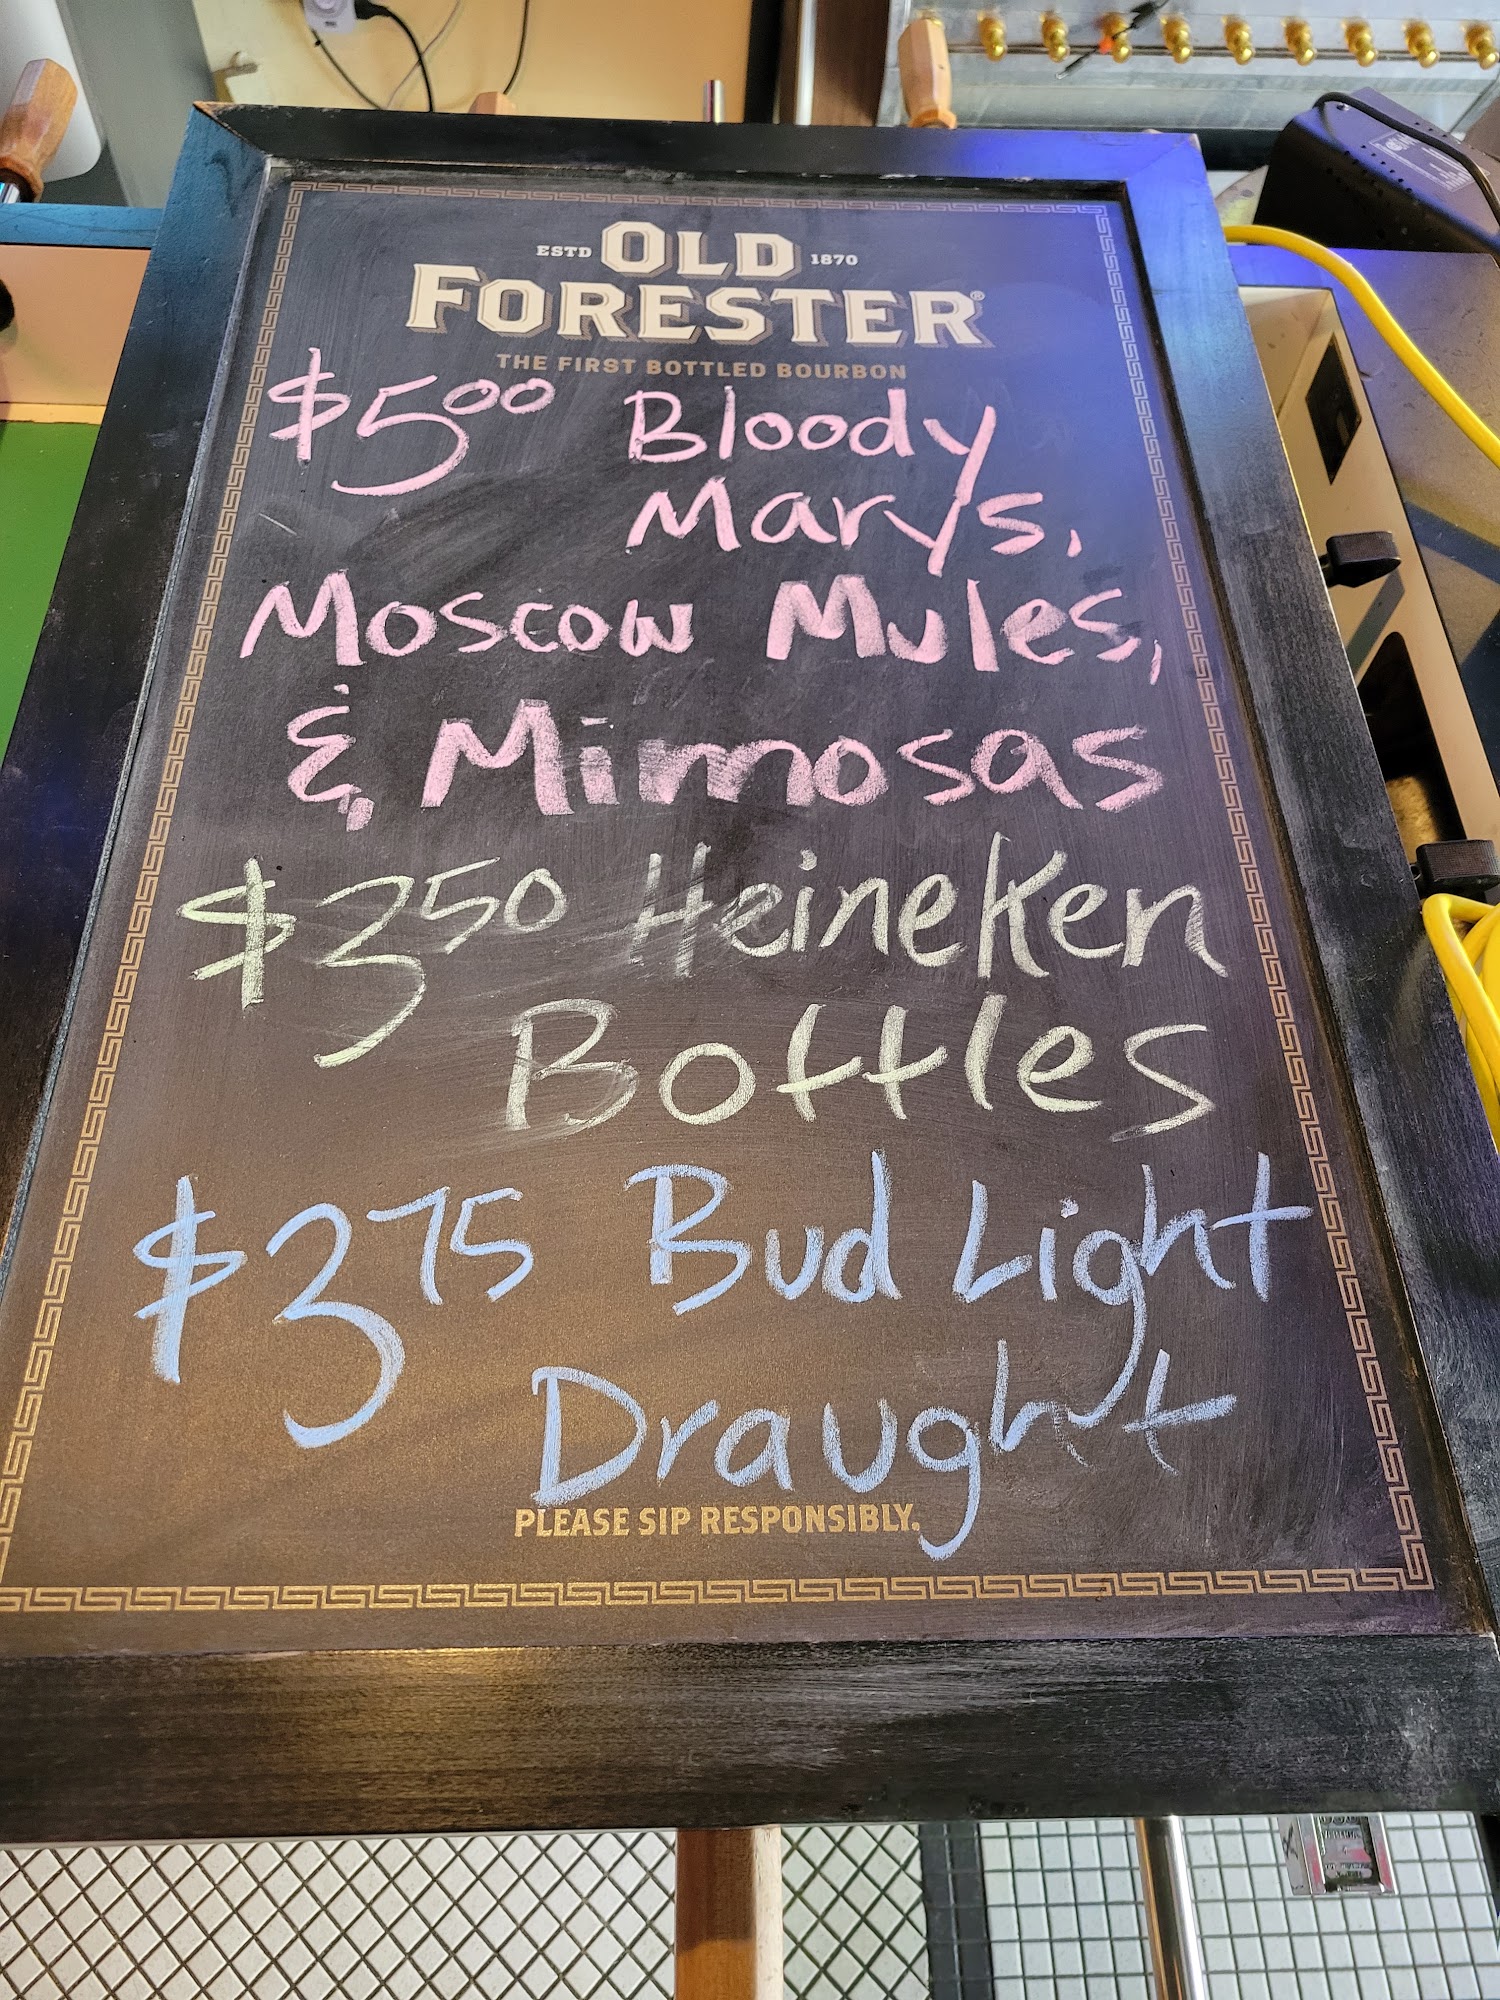 ESTD OLD 1870
FORESTER®
THE FIRST BOTTLED BOURBON
$5.00 Bloody
Marys,
Moscow Mules,
& Mimosas
$3.50 Heineken
Bottles
$3.75 Bud Light
Draught
PLEASE SIP RESPONSIBLY.